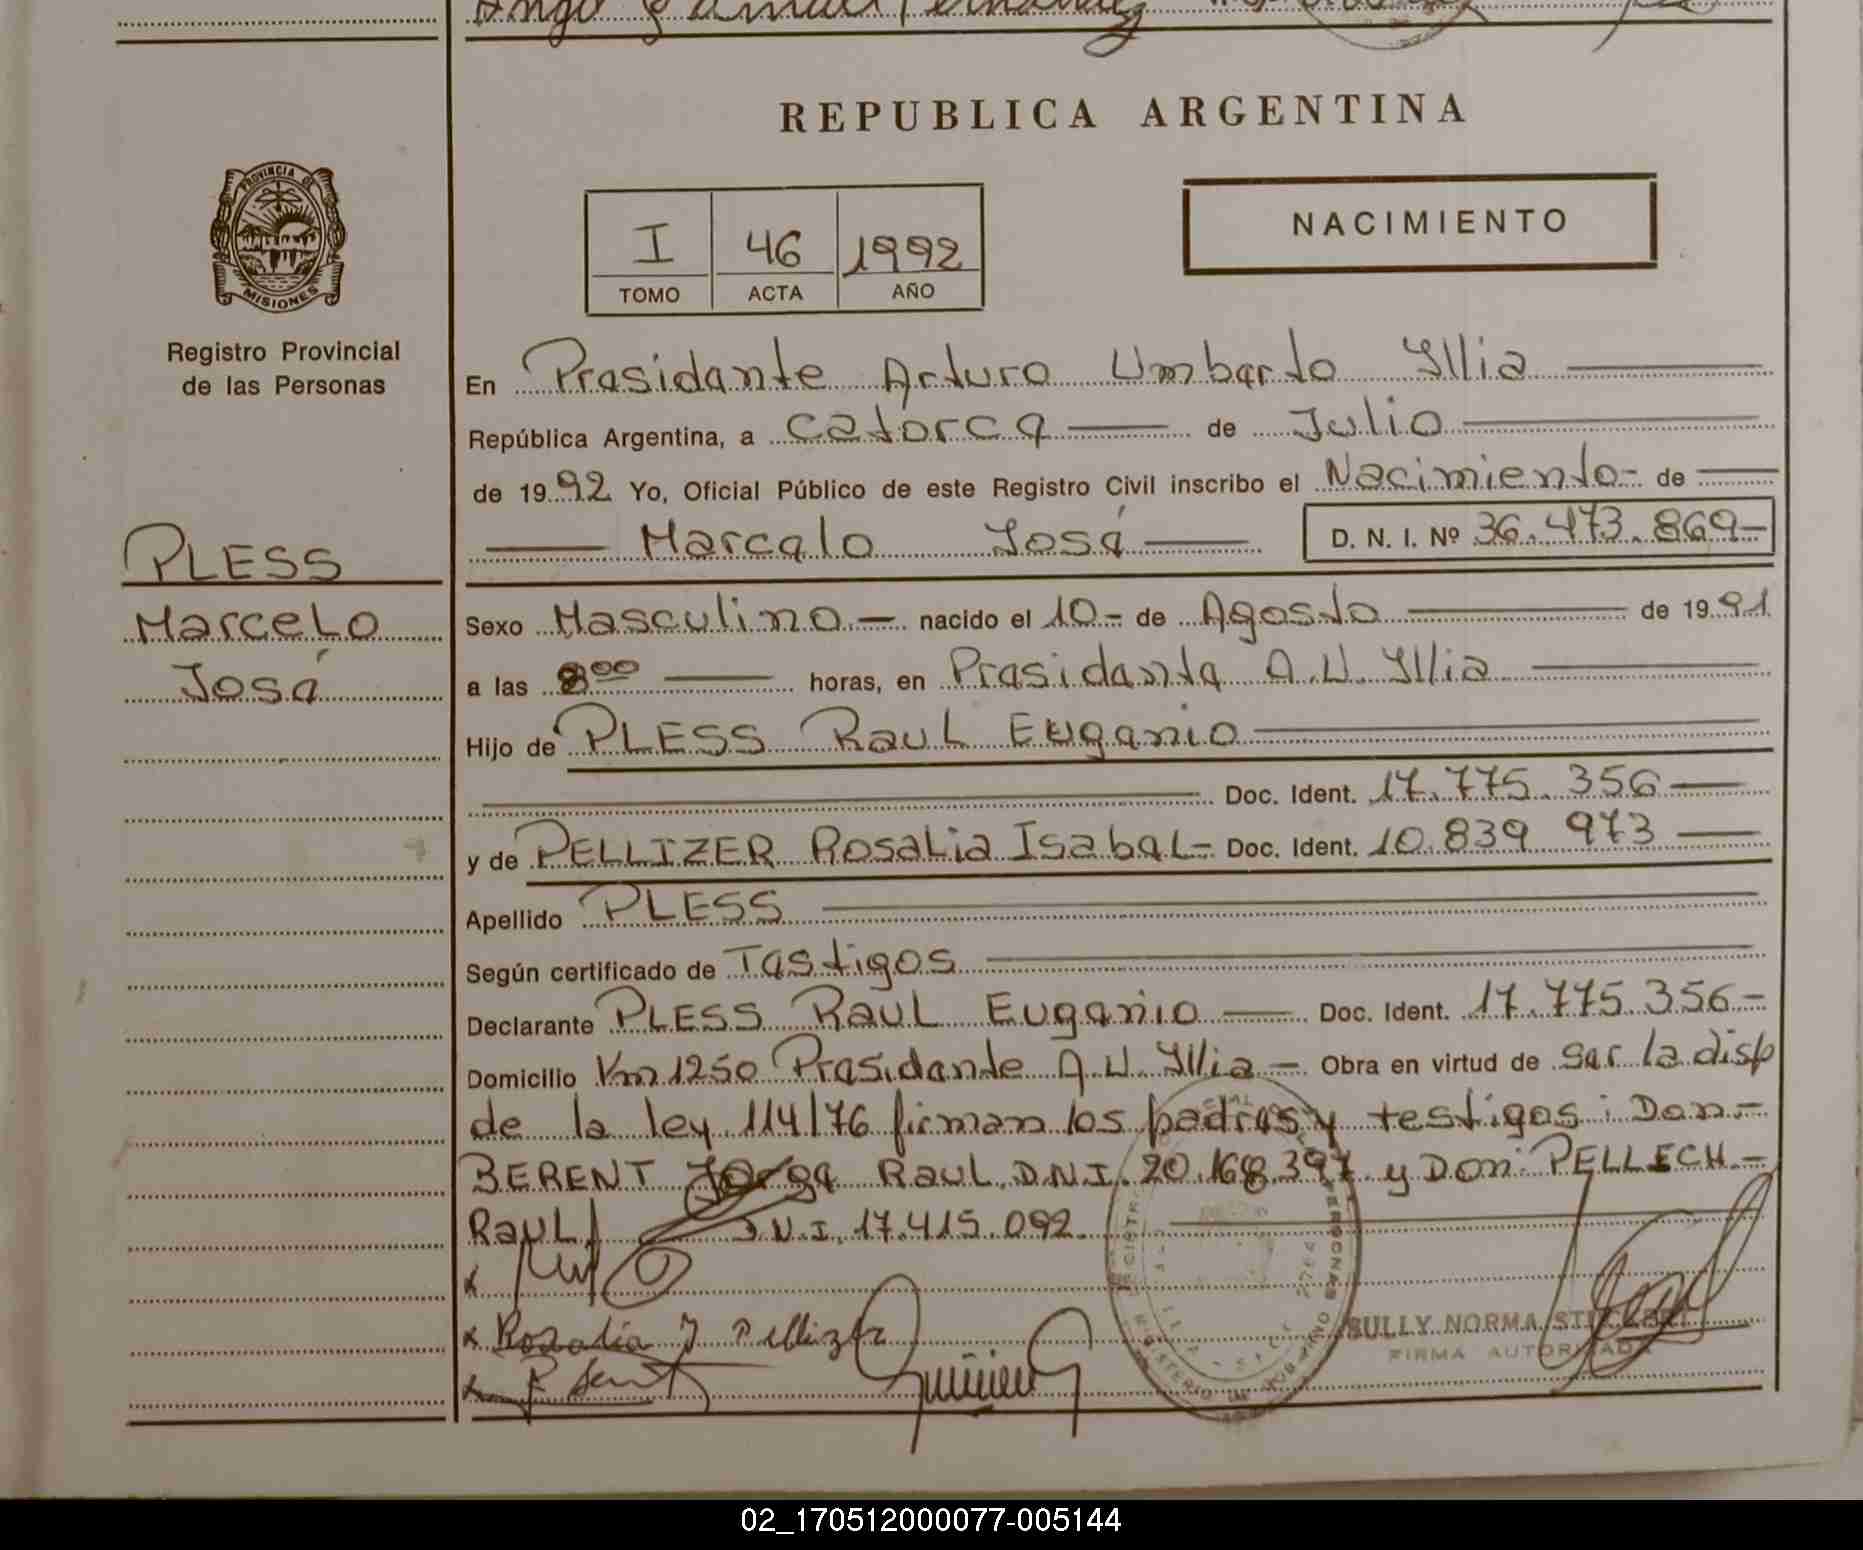 REPUBLICA ARGENTINA
PROVINCIA DE
MISIONES
Registro Provincial
de las Personas
I 46 1992
TOMO ACTA AÑO
NACIMIENTO
En Presidente Arturo Umberto Yllia
República Argentina, a catorce de Julio
de 1992 Yo, Oficial Público de este Registro Civil inscribo el Nacimiento - de
Marcelo José D. N. I. Nº 36.473.869-
PLESS
Marcelo
José
Sexo Masculino - nacido el 10 - de Agosto de 1991
a las 8 00 horas, en Presidente A.U. Yllia
Hijo de PLESS Raul Eugenio
Doc. Ident. 17.775.356
y de PELLIZER Rosalia Isabel - Doc. Ident. 10.839 973
Apellido PLESS
Según certificado de Testigos
Declarante PLESS Raul Eugenio Doc. Ident. 17.775.356-
Domicilio Km 1250 Presidente A.U. Yllia - Obra en virtud de ser la disp
de la ley 114/76 firman los padres y testigos: Don-
BERENT Jorge RAUL D.N.I. 20.168.397 y Don: PELLECH.-
RAUL D.N.I. 17.415.092.
x
x Rosalia I Pellizer
x
SULLY NORMA
FIRMA AUTORIZADA
02_170512000077-005144